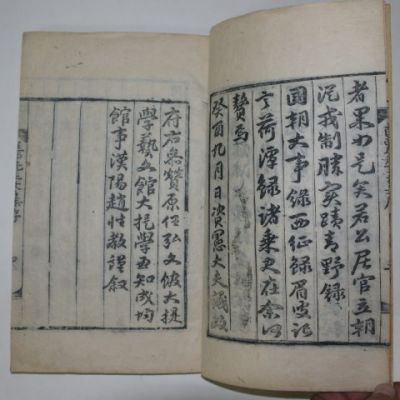 者果是矣若公居官立朝
制勝實蹟青野錄
國朝大事錄西征錄眉叟記
言荷潭錄諸乘史在奈何
贅焉
癸酉九月日資憲大夫議政
府右參贊原任弘文館大提
學藝文館大提學知成均
館事漢陽趙性教謹敘